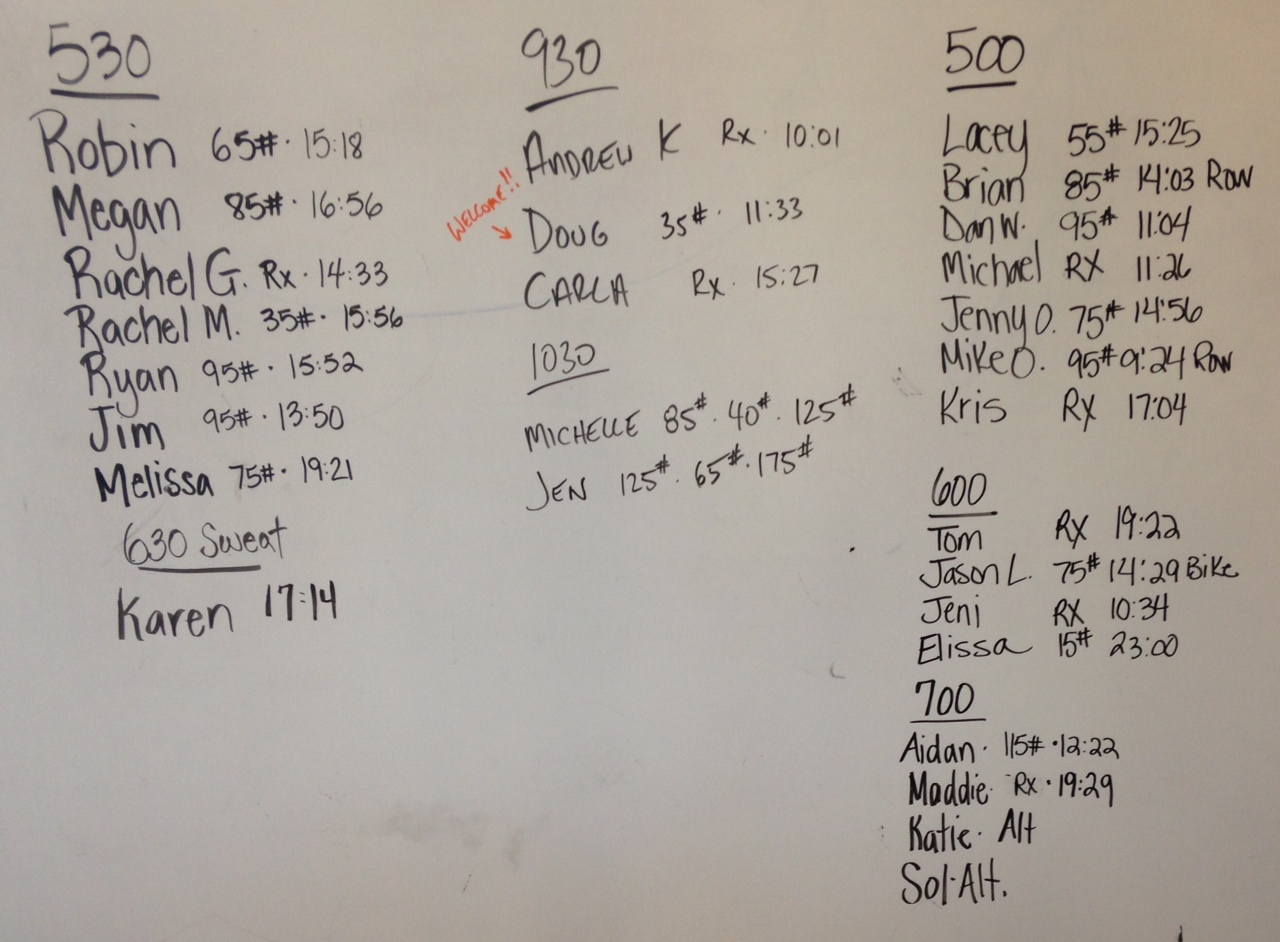 530
Robin 65# · 15:18
Megan 85# · 16:56
Rachel G. Rx · 14:33
Rachel M. 35# · 15:56
Ryan 95# · 15:52
Jim 95# · 13:50
Melissa 75# · 19:21
630 Sweat
Karen 17:14
930
ANDREW K Rx · 10:01
WELCOME!!
DOUG 35# · 11:33
CARLA Rx · 15:27
1030
MICHELLE 85# · 40# · 125#
JEN 125# · 65# · 175#
500
Lacey 55# 15:25
Brian 85# 14:03 Row
Dan W. 95# 11:04
Michael RX 11:26
Jenny O. 75# 14:56
Mike O. 95# 9:24 Row
Kris RX 17:04
600
Tom RX 19:22
Jason L. 75# 14:29 Bike
Jeni RX 10:34
Elissa 15# 23:00
700
Aidan · 115# · 12:22
Maddie · Rx · 19:29
Katie · Alt
Sol · Alt.